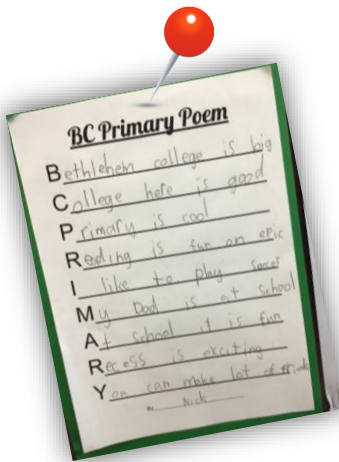 BC Primary Poem
Bethlehem college is big
College here is good
Primary is cool
Reding is fun an epic
I like to play soccer
My Dad is at School
At School it is fun
Recess is exciting
You can make lot of